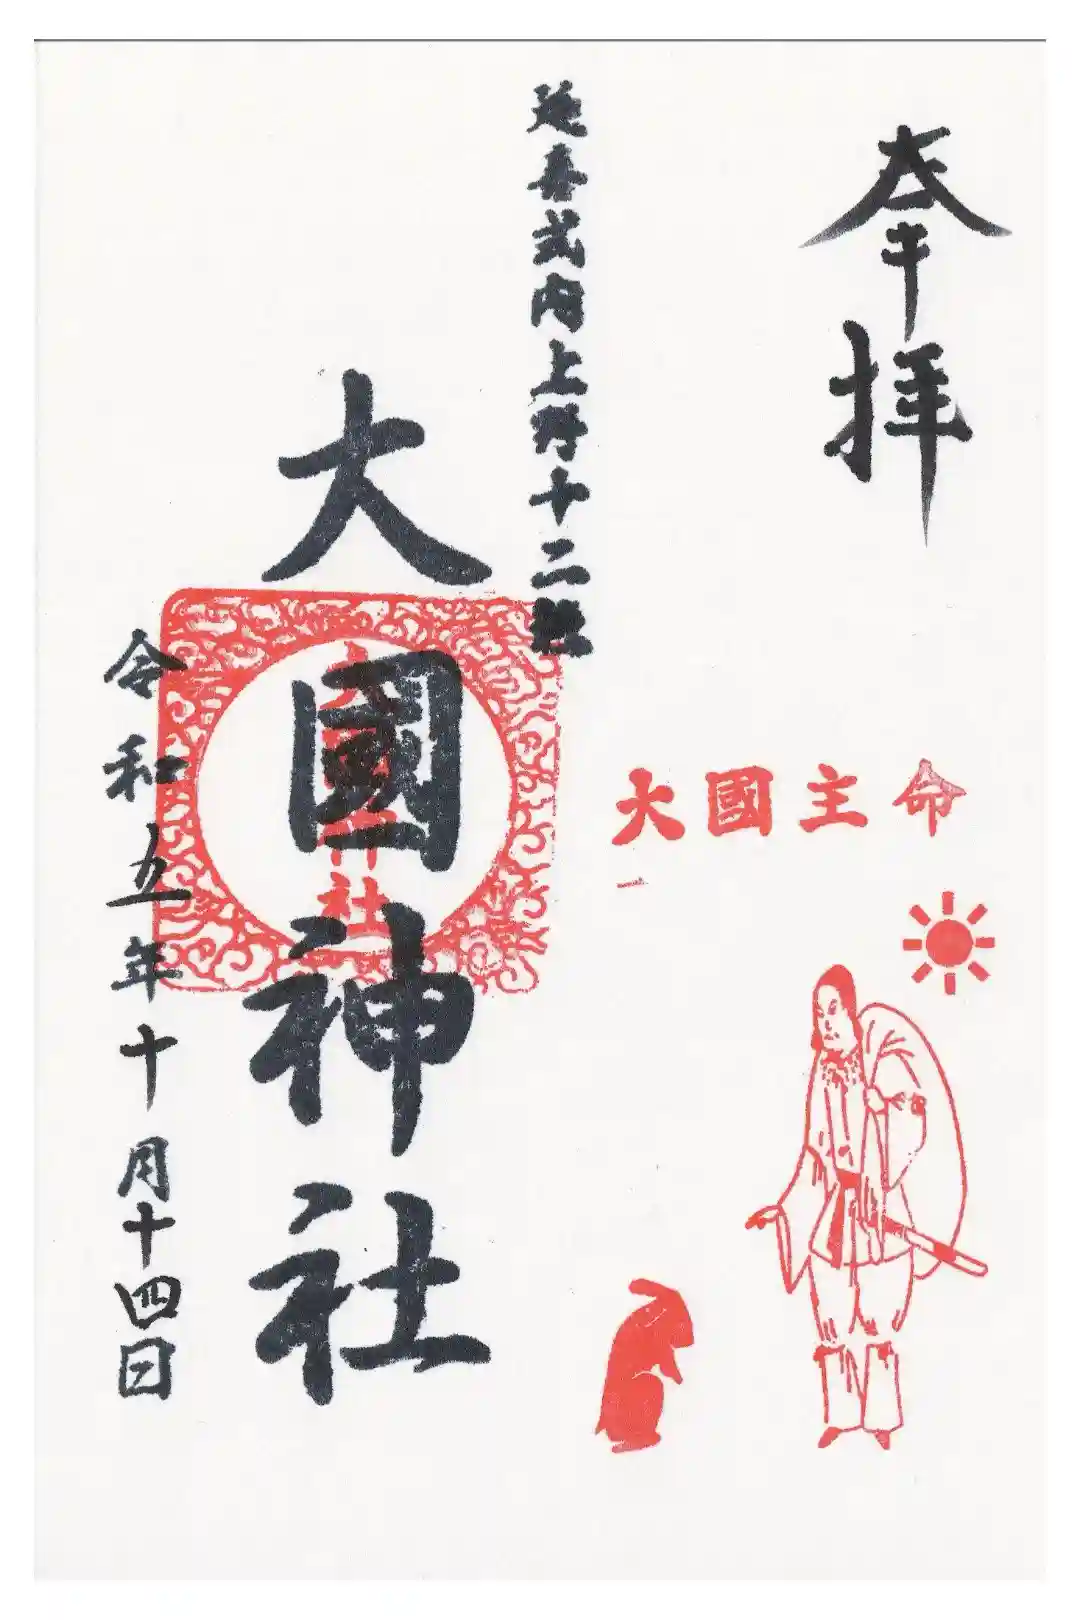 奉拝
大國主命
延喜式内上野十二社
大國神社
令和五年十月十四日